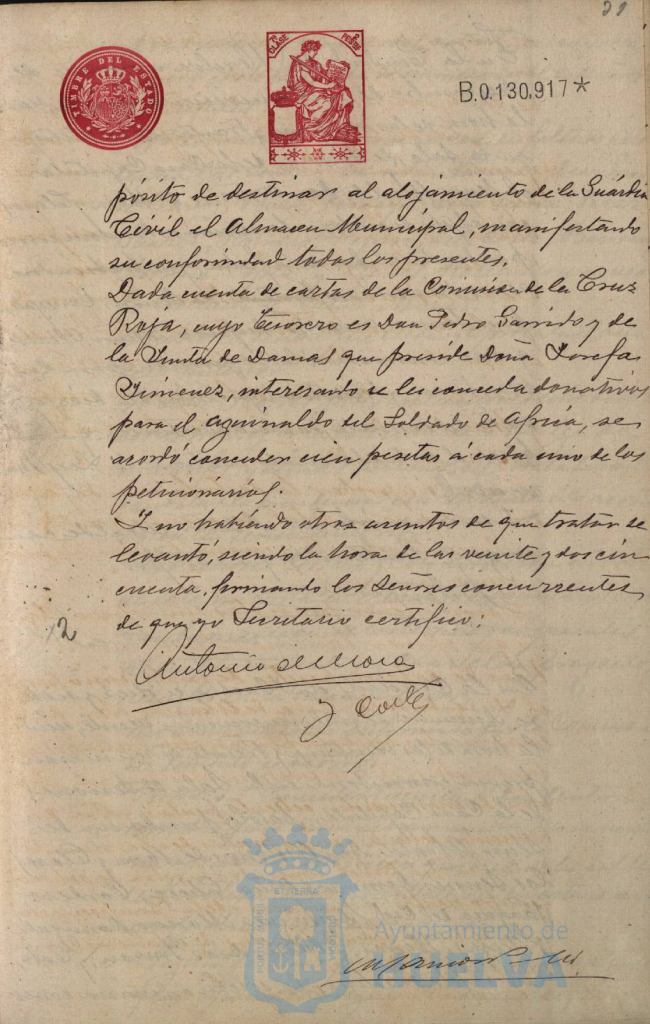 29
TIMBRE DEL ESTADO
7ª CLASE 2 PESETAS
B.0.130,917*
pósito de destinar al alojamiento de la Guárdia
Cívil el Almacen Municipal, manifestando
su conformidad todos los presentes.
Dada cuenta de cartas de la Comisión de la Cruz
Roja, cuyo Tesorero es Don Pedro Garrido y de
la Junta de Damas que preside Doña Josefa
Jimenez, interesando se les conceda donativos
para el aguinaldo del Soldado de Africa, se
acordó conceder cien pesetas á cada uno de los
peticionarios.
Y no habiendo otros asuntos de que tratar se
levantó, siendo la hora de las veinte y dos cin
cuenta, firmando los Señores concurrentes
de que yo Secretario certifico:
12
Antonio de Mora
y
PORTUS MARIS ET TERRÆ CUSTODIA
Ayuntamiento de
HUELVA